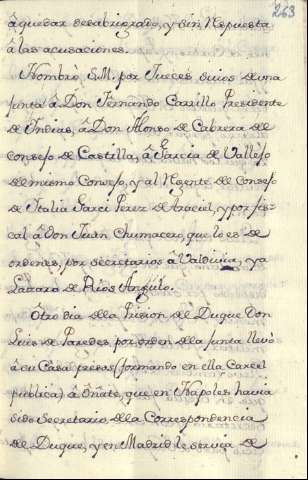 263
â quedar desabrigado, y sin Respuesta
â las acusaciones.
Nombrò S.M. por Jueces suios de una
junta â Don Fernando Carrillo Presidente
de Indias, â Don Alonso de Cabrera del
consejo de Castilla, â Garcia de Vallejo
del mismo Consejo, y al Regente de Consejo
de Italia Garci Perez de Araciel, y por fis-
cal â Don Juan Chumacero, que lo es de
ordenes, por secretarios â Valdivia, y a
Lazaro de Rios Angulo.
Ôtro dia dela Prision del Duque Don
Luis de Paredes por orden dela Junta llevò
â su Casa presas (formando en ella Carcel
publica) â Oñate, que en Napoles havia
sido Secretario dela Correspondencia
del Duque, y en Madrid le servia de